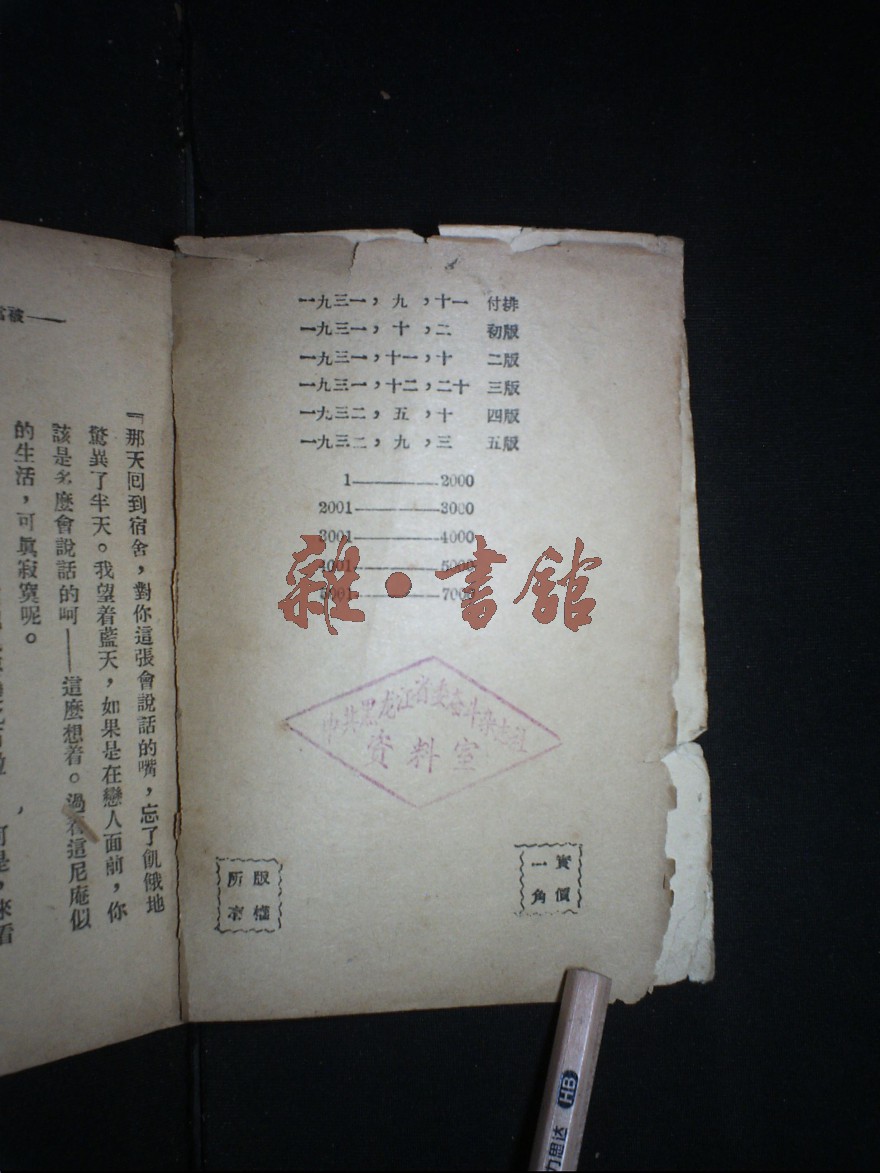 一九三一，九，十一 付排
一九三一，十，二 初版
一九三一，十一，十 二版
一九三一，十二，二十 三版
一九三二，五，十 四版
一九三二，九，三 五版
1————2000
2001————3000
3001————4000
4001————5000
5001————7000
雜·書館
中共黑龙江省委奋斗杂志社
资料室
實價
一角
版權
所有
『那天回到宿舍，對你這張會說話的嘴，忘了飢餓地
驚異了半天。我望着藍天，如果是在戀人面前，你
該是多麼會說話的呵——這麼想着。過着這尼庵似
的生活，可眞寂寞呢。
可是，來看
HB
力思达